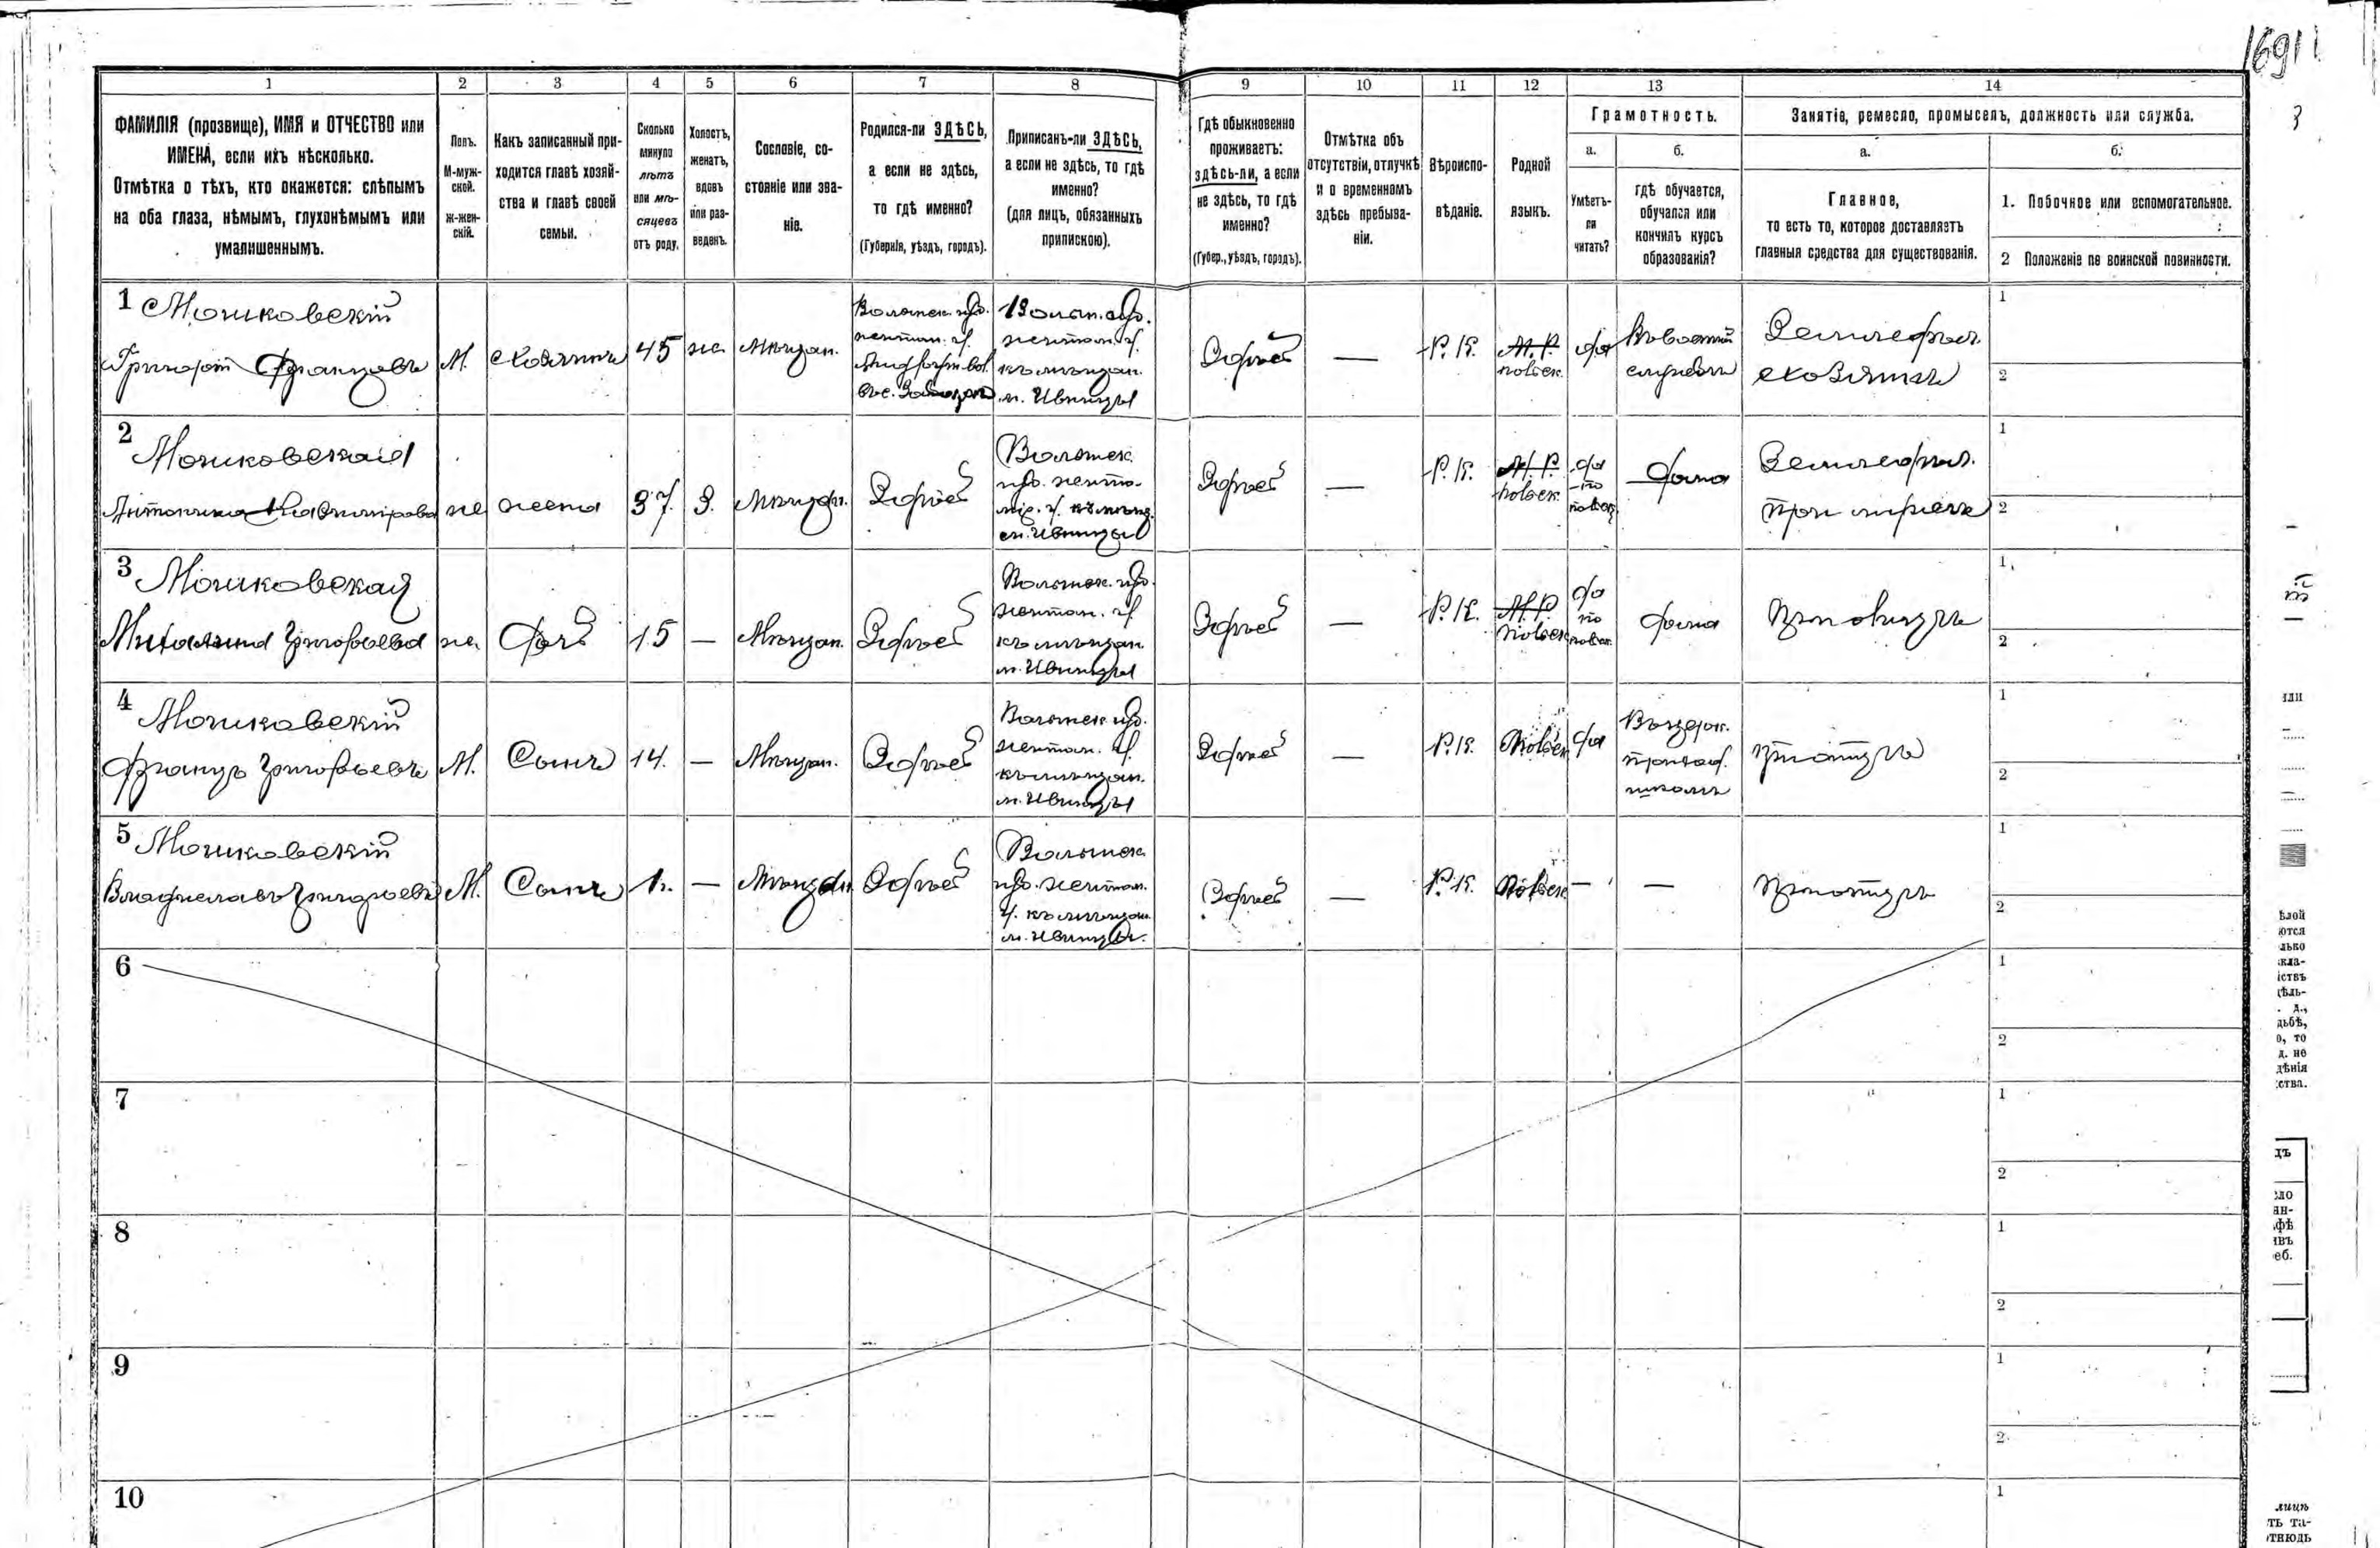 1691
3
1
2
3
4
5
6
7
8
9
10
11
12
13
14
ФАМИЛІЯ (прозвище), ИМЯ и ОТЧЕСТВО или
ИМЕНА, если ихъ нѣсколько.
Отмѣтка о тѣхъ, кто окажется: слѣпымъ
на оба глаза, нѣмымъ, глухонѣмымъ или
умалишеннымъ.
Полъ.
М-муж-
ской.
ж-жен-
скій.
Какъ записанный при-
ходится главѣ хозяй-
ства и главѣ своей
семьи.
Сколько
минуло
лѣтъ
или мѣ-
сяцевъ
отъ роду.
Холостъ,
женатъ,
вдовъ
или раз-
веденъ.
Сословіе, со-
стояніе или зва-
ніе.
Родился-ли ЗДѢСЬ,
а если не здѣсь,
то гдѣ именно?
(Губернія, уѣздъ, городъ).
Приписанъ-ли ЗДѢСЬ,
а если не здѣсь, то гдѣ
именно?
(для лицъ, обязанныхъ
припискою).
Гдѣ обыкновенно
проживаетъ:
здѣсь-ли, а если
не здѣсь, то гдѣ
именно?
(Губер., уѣздъ, городъ).
Отмѣтка объ
отсутствіи, отлучкѣ
и о временномъ
здѣсь пребыва-
ніи.
Вѣроиспо-
вѣданіе.
Родной
языкъ.
Грамотность.
а.
Умѣетъ-
ли
читать?
б.
гдѣ обучается,
обучался или
кончилъ курсъ
образованія?
Занятіе, ремесло, промыселъ, должность или служба.
а.
Главное,
то есть то, которое доставляетъ
главныя средства для существованія.
б.
1. Побочное или вспомогательное.
2 Положеніе по воинской повинности.
1 Мошковскій
Григорій Францовъ
М.
Хозяинъ
45
же
Мѣщан.
Волынск. губ.
житом. у.
Волын. губ.
житом. у.
къ мѣщан.
м. Ивницы
Здѣсь
—
Р. К.
М. Р.
польск.
да
Земледѣл.
хозяинъ
1
2
2 Мошковская
Антонина
же
жена
37.
З.
Мѣщан.
Здѣсь
Волынск.
губ. жито-
мір. у. къ мѣщ.
м. Ивницы
Здѣсь
—
Р. К.
М. Р.
польск.
да
по
польск.
дома
Земледѣл.
при мужѣ
1
2
3 Мошковская
Григорьева
же
Дочь
15
—
Мѣщан.
Здѣсь
Волынск. губ.
житом. у.
къ мѣщан.
м. Ивницы
Здѣсь
—
Р. К.
М. Р.
польск.
да
по
польск.
дома
При отцѣ
1
2
4 Мошковскій
Францъ Григорьевъ
М.
Сынъ
14.
—
Мѣщан.
Здѣсь
Волынск. губ.
житом. у.
къ мѣщан.
м. Ивницы
Здѣсь
—
Р. К.
Польск.
да
Въ церк.
приход.
школѣ
При отцѣ
1
2
5 Мошковскій
Владиславъ Григорьевъ
М.
Сынъ
1.
—
Мѣщан.
Здѣсь
Волынск.
губ. житом.
у. къ мѣщан.
м. Ивницы.
Здѣсь
—
Р. К.
Польск.
—
—
При отцѣ
1
2
6
1
2
7
1
2
8
1
2
9
1
2
10
1